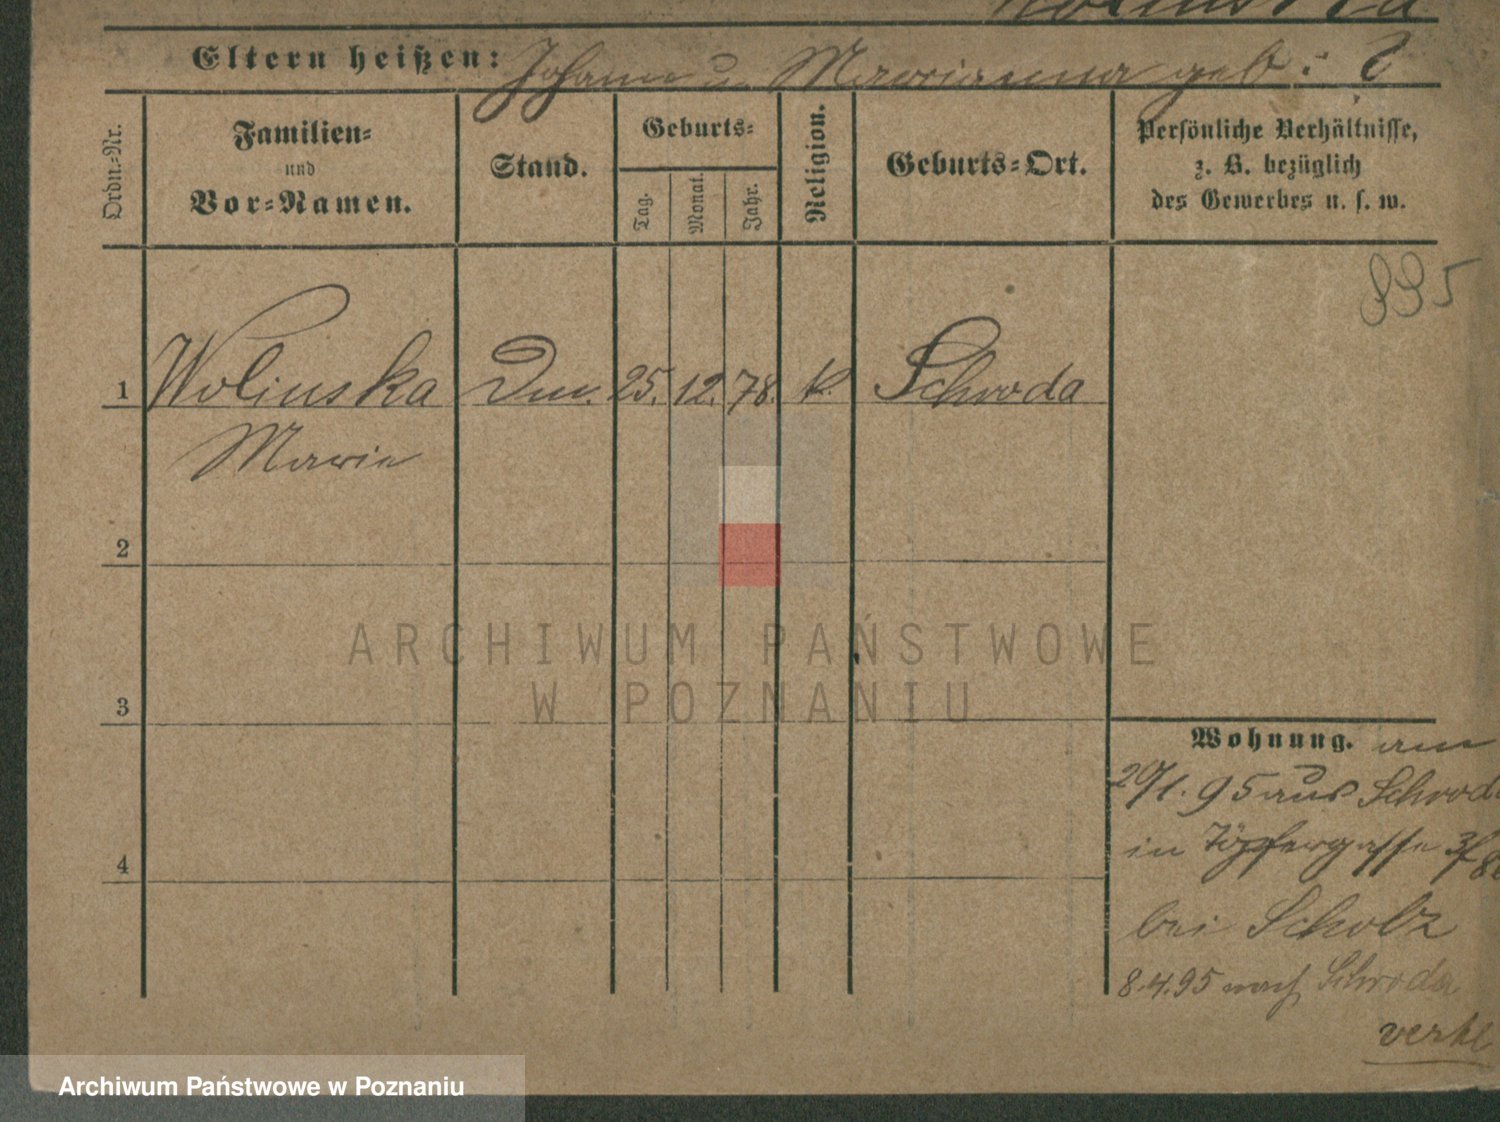 Eltern heißen: Johann u. Marianna geb: ?
Ordn.-Nr.
Familien-
und
Vor-Namen.
Stand.
Geburts-
Tag.
Monat.
Jahr.
Religion.
Geburts-Ort.
Persönliche Verhältnisse,
z. B. bezüglich
des Gewerbes u. s. w.
895
1 Wolinska 25. 12. 78. k. Schroda
Marie
2
3
4
ARCHIWUM PAŃSTWOWE
W POZNANIU
Wohnung. am
29/1. 95 aus Schroda
in Töpfergasse
bei Scholz
8.4.95 nach Schroda
Archiwum Państwowe w Poznaniu